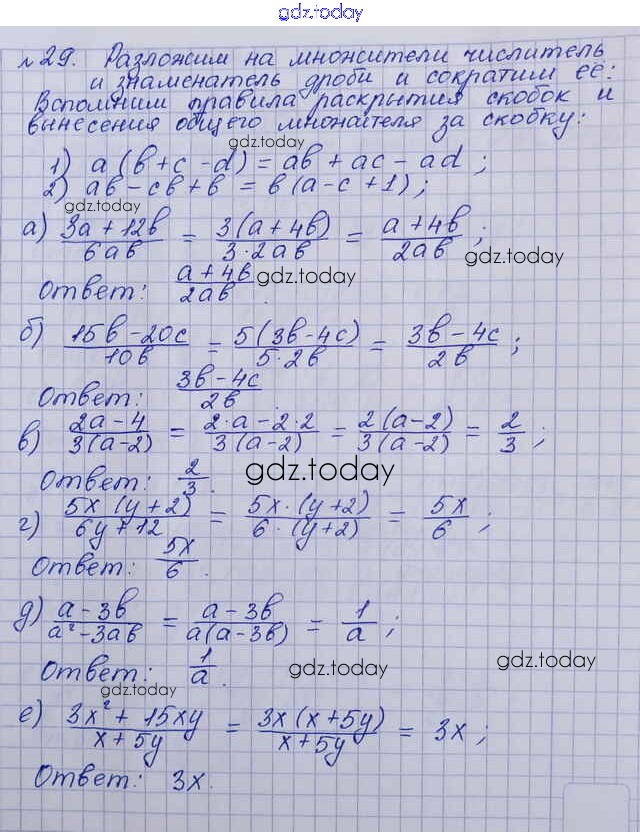 gdz.today
№29. Разложим на множители числитель
и знаменатель дроби и сократим её:
Вспомним правила раскрытия скобок и
вынесения общего множителя за скобку:
gdz.today
1) a(b+c-d) = ab + ac - ad ;
2) ab - cb + b = b(a-c+1);
gdz.today
а) (3a + 12b)/(6ab) = (3(a+4b))/(3·2ab) = (a+4b)/(2ab) ;
gdz.today
Ответ: (a+4b)/(2ab) .
gdz.today
б) (15b - 20c)/(10b) = (5(3b-4c))/(5·2b) = (3b-4c)/(2b) ;
Ответ: (3b-4c)/(2b)
в) (2a-4)/(3(a-2)) = (2·a-2·2)/(3(a-2)) = (2(a-2))/(3(a-2)) = 2/3 ;
Ответ: 2/3.
gdz.today
г) (5x(y+2))/(6y+12) = (5x·(y+2))/(6·(y+2)) = 5x/6 ;
Ответ: 5x/6 .
д) (a-3b)/(a²-3ab) = (a-3b)/(a(a-3b)) = 1/a ;
Ответ: 1/a .
gdz.today
gdz.today
gdz.today
е) (3x² + 15xy)/(x+5y) = (3x(x+5y))/(x+5y) = 3x ;
Ответ: 3x.